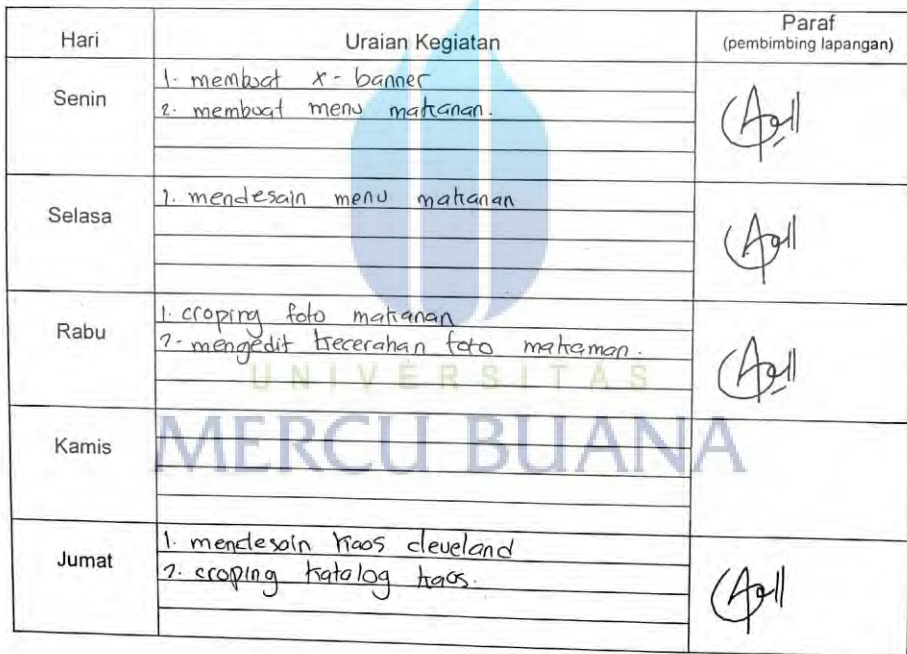 Hari Uraian Kegiatan Paraf
(pembimbing lapangan)
Senin
1. membuat x-banner
2. membuat menu makanan.
Selasa
1. mendesain menu makanan
Rabu
1. croping foto makanan
2. mengedit kecerahan foto makaman.
UNIVERSITAS
MERCU BUANA
Kamis
Jumat
1. mendesain kaos cleveland
2. croping katalog kaos.